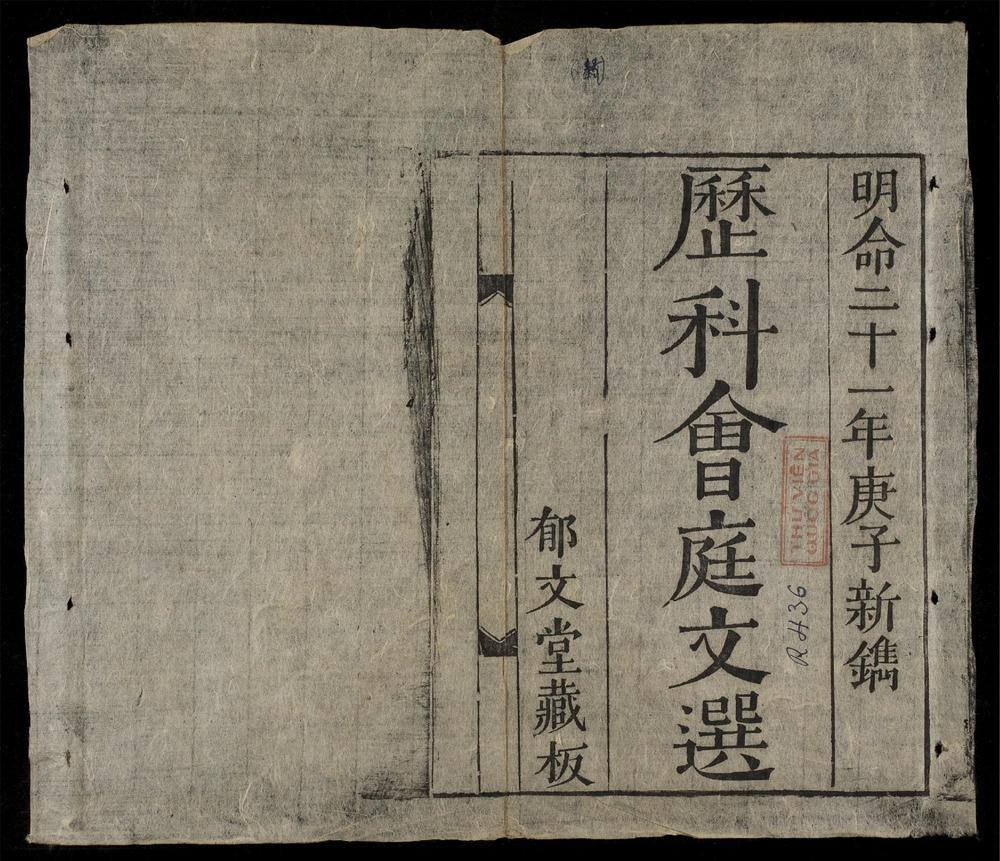 明命二十一年庚子新鐫
歷科會庭文選
郁文堂藏板
THƯ VIỆN
QUỐC GIA
RH36